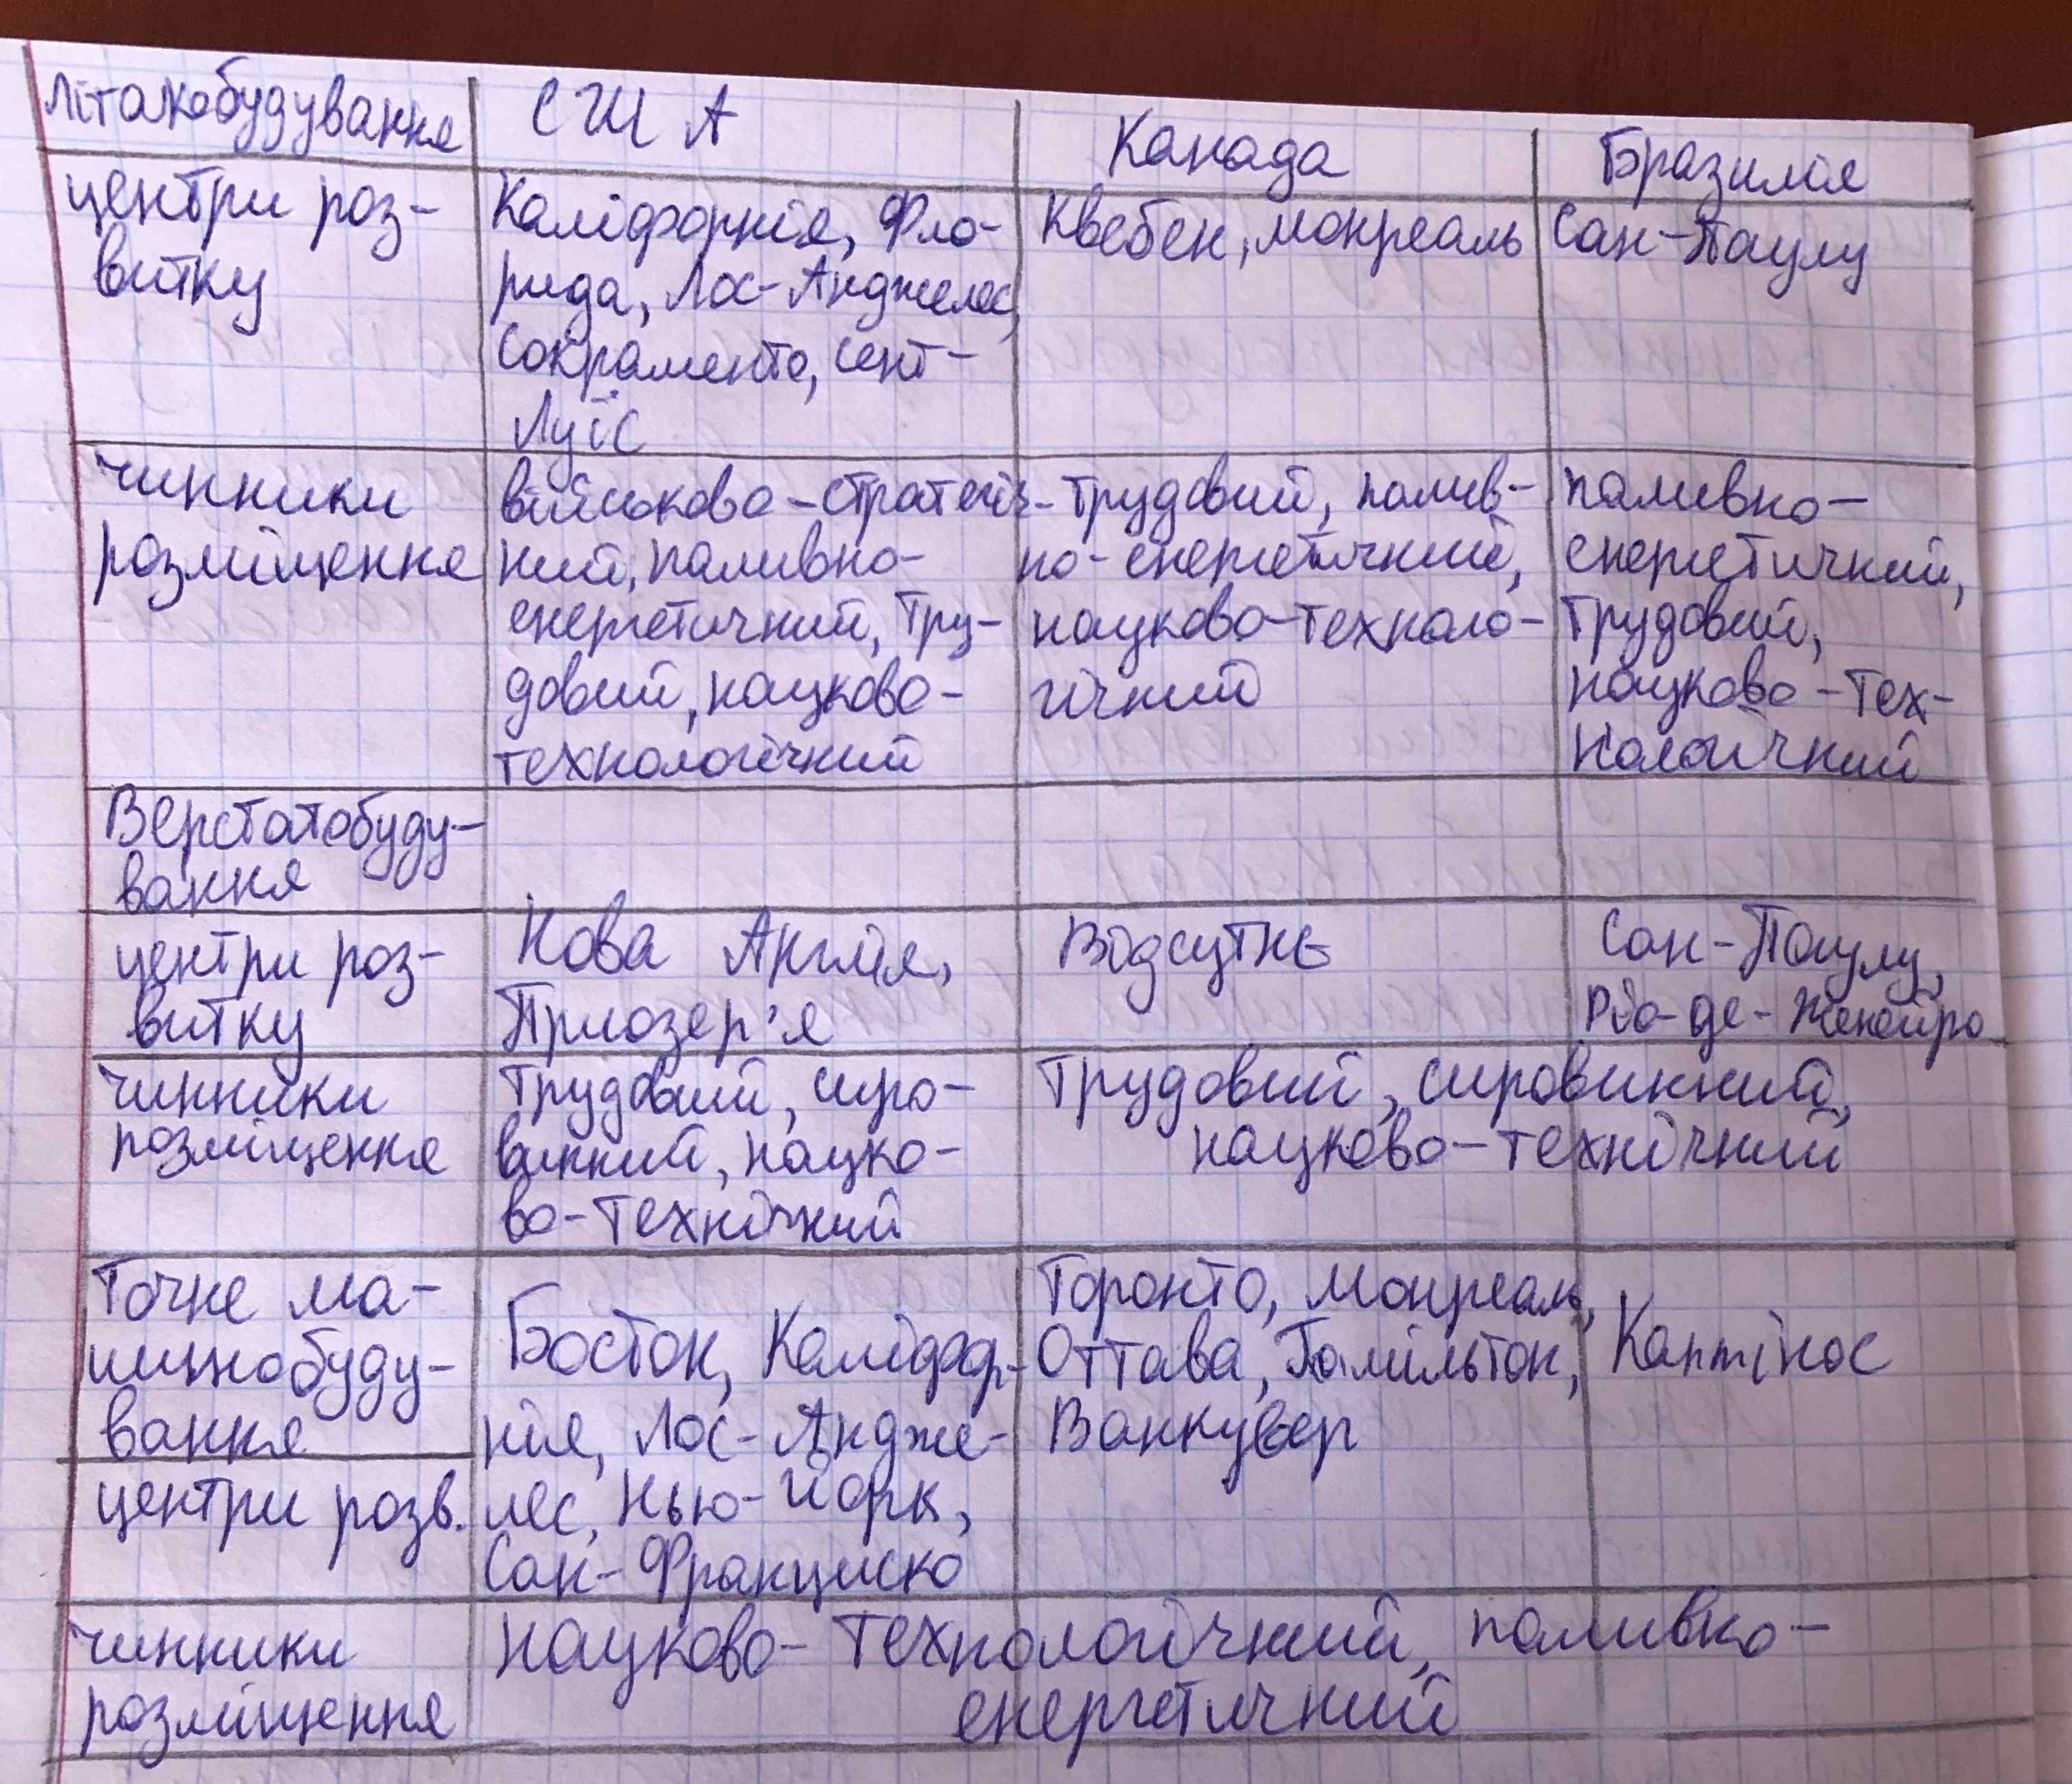 літакобудування
США
Канада
Бразилія
центри роз-
витку
Каліфорнія, Фло-
рида, Лос-Анджелес,
Сокраменто, Сент-
Луїс
Квебек, монреаль
Сан-Паулу
чинники
розміщення
військово-стратегіч-
ний, паливно-
енергетичний, тру-
довий, науково-
технологічний
трудовий, палив-
но-енергетичний,
науково-техноло-
гічний
паливно-
енергетичний,
трудовий,
науково-тех-
нологічний
Верстатобуду-
вання
центри роз-
витку
Нова Англія,
Приозер'я
Відсутнє
Сан-Паулу,
Ріо-де-Женейро
чинники
розміщення
трудовий, сиро-
винний, науко-
во-технічний
трудовий, сировинний,
науково-технічний
Точне ма-
шинобуду-
вання
центри розв.
Бостон, Каліфор-
нія, Лос-Андже-
лес, Нью-Йорк,
Сан-Франциско
Торонто, Монреаль,
Оттава, Гамільтон,
Ванкувер
чинники
розміщення
науково-технологічний, паливно-
енергетичний